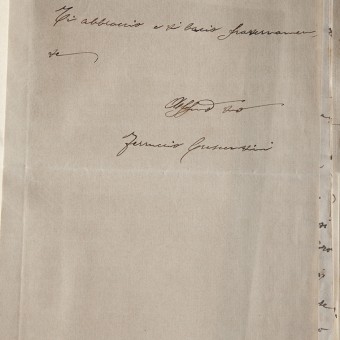 Ti abbraccio e ti bacio fraternamen
te
Aff.mo tuo
Ferruccio